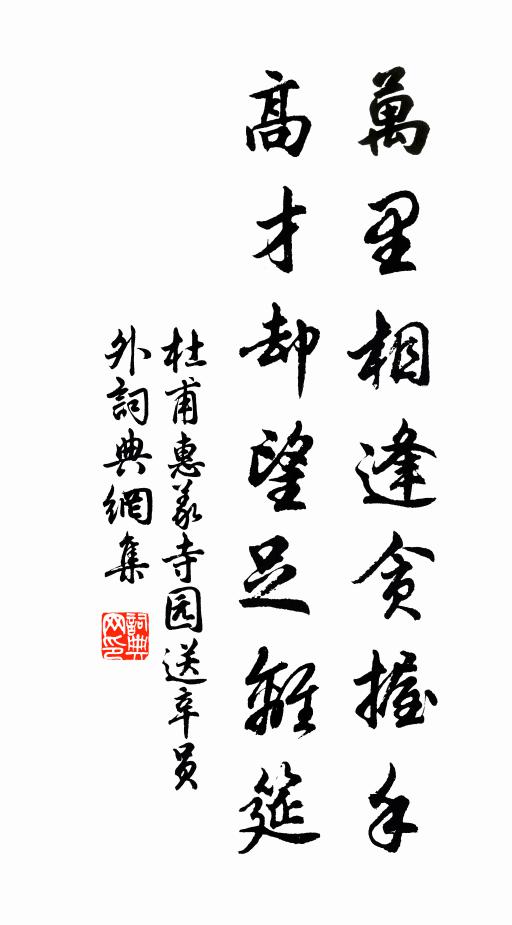 萬里相逢貪握手
高才却望足離筵
杜甫惠義寺园送辛员
外詞典網集
詞典网印